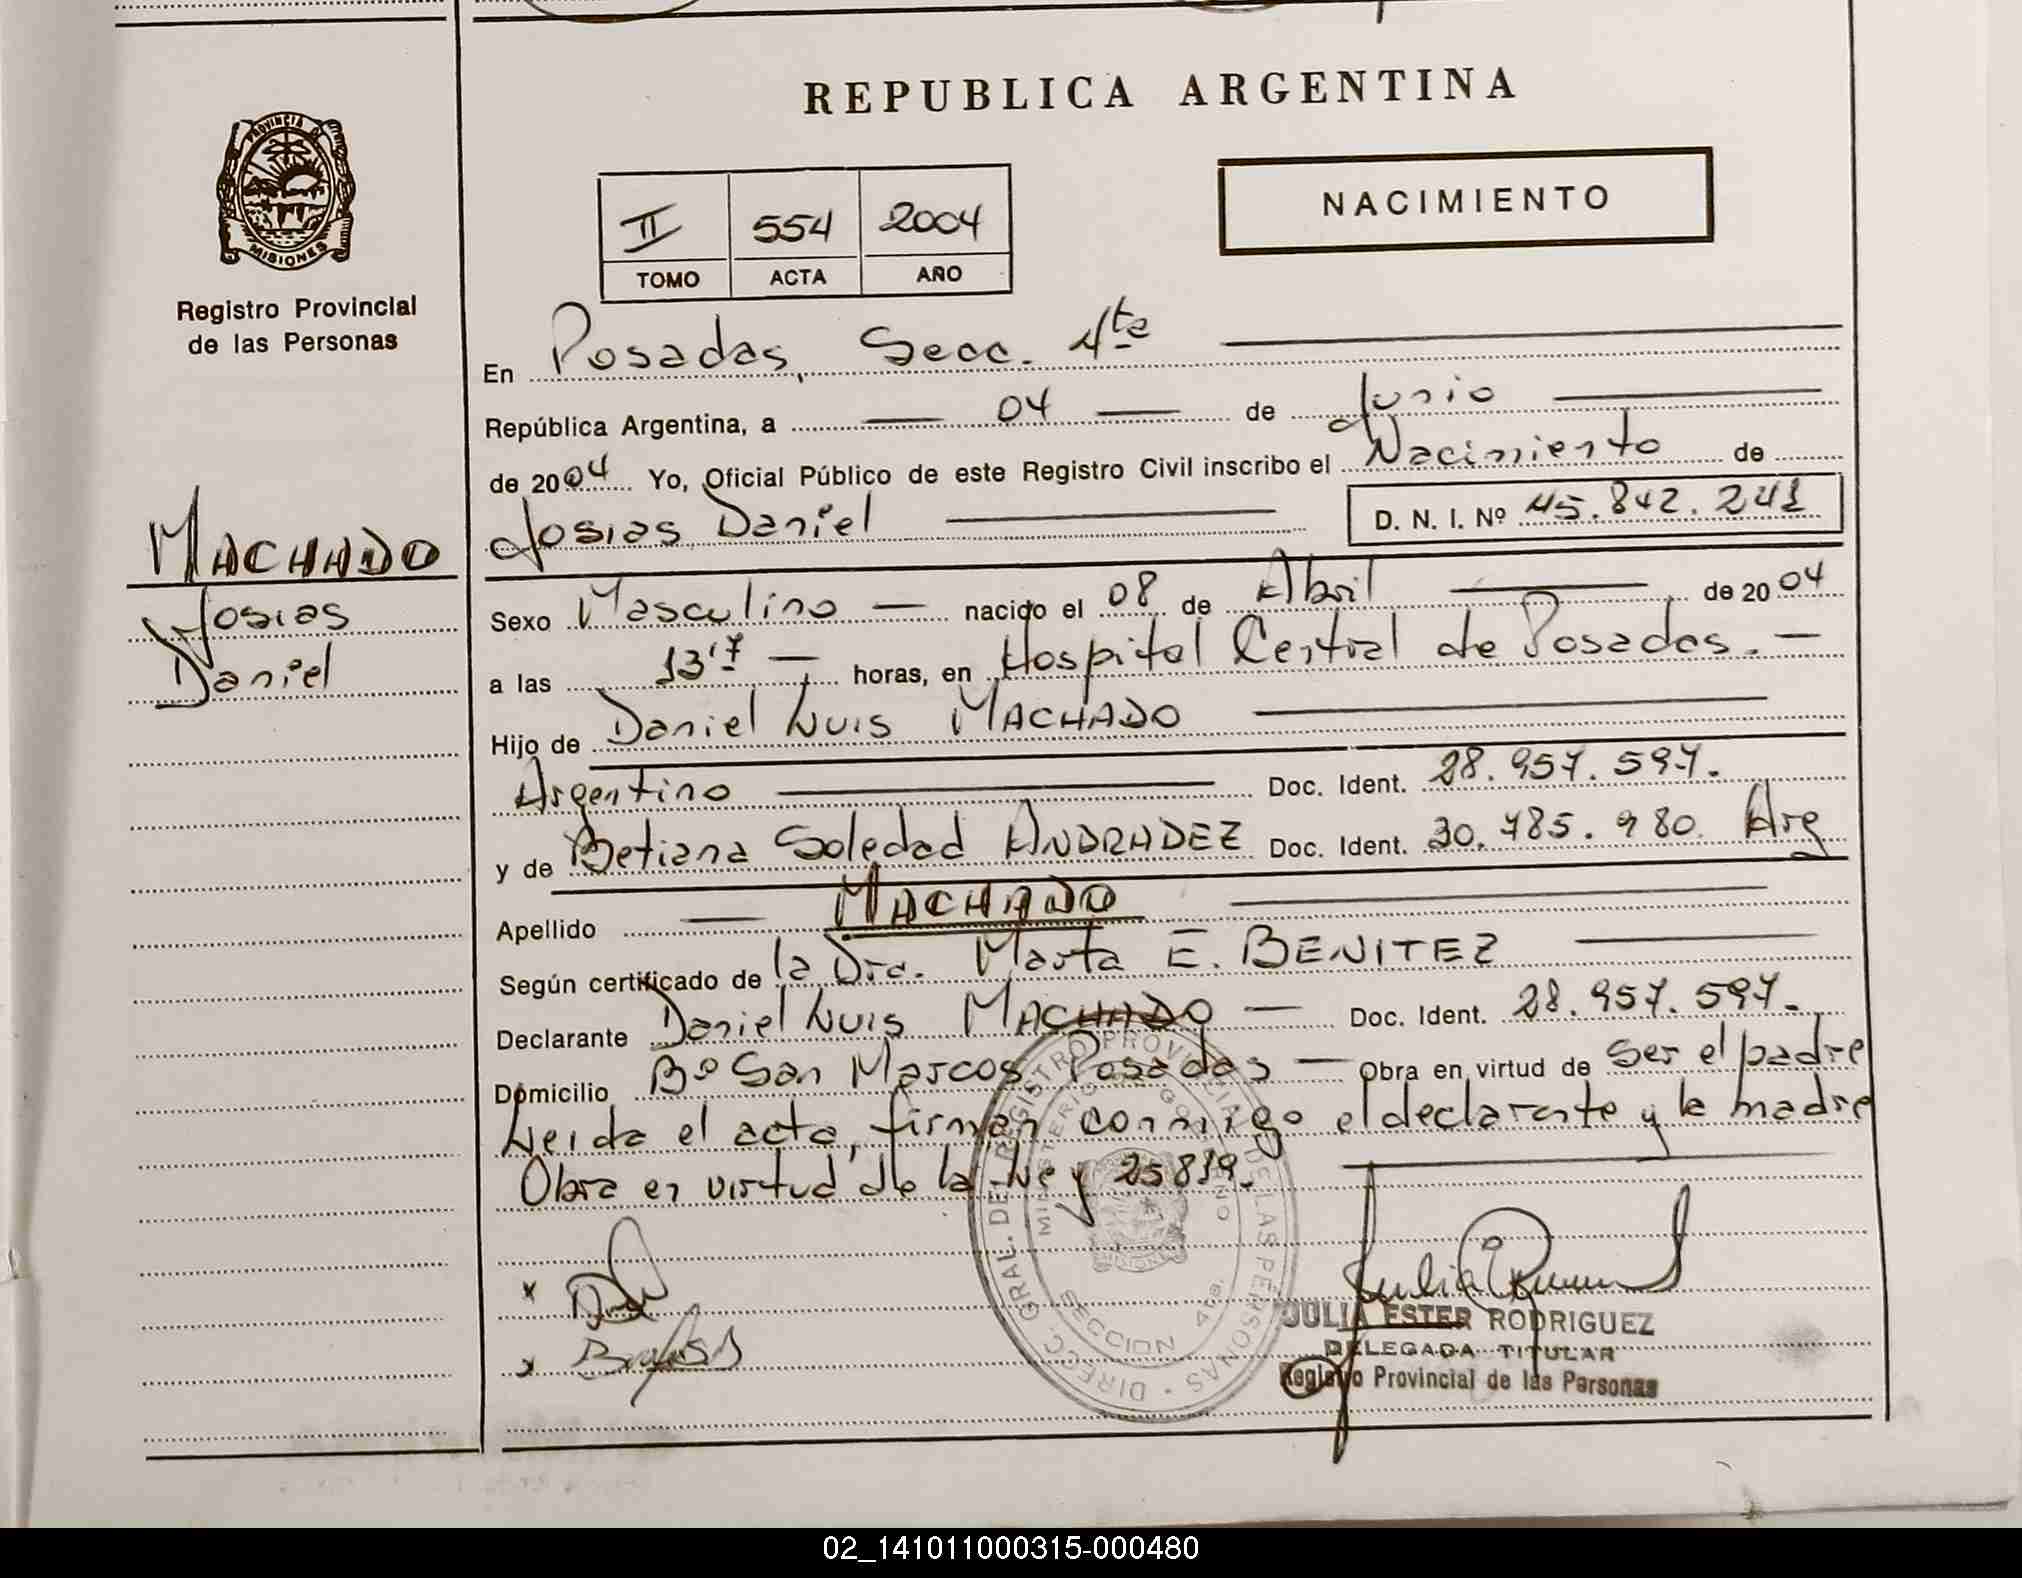 REPUBLICA ARGENTINA
PROVINCIA DE
MISIONES
Registro Provincial
de las Personas
NACIMIENTO
II 554 2004
TOMO ACTA AÑO
En Posadas, Secc. 4ta
República Argentina, a 04 de Junio
de 2004 Yo, Oficial Público de este Registro Civil inscribo el Nacimiento de
Josias Daniel D. N. I. Nº 45.842.241
MACHADO
Josias
Daniel
Sexo Masculino nacido el 08 de Abril de 2004
a las 13'7 horas, en Hospital Central de Posadas.
Hijo de Daniel Luis MACHADO
Argentino Doc. Ident. 28.957.597.
y de Betiana Soledad ANDRADEZ Doc. Ident. 30.785.980 Arg
Apellido MACHADO
Según certificado de la Dra. Marta E. BENITEZ
Declarante Daniel Luis MACHADO Doc. Ident. 28.957.597.
Domicilio Bº San Marcos Posadas Obra en virtud de ser el padre
Leida el acta, firman conmigo el declarante y la madre
Obra en virtud de la Ley 25819.
DIRECC. GRAL. DEL REGISTRO PROVINCIAL DE LAS PERSONAS
MINISTERIO DE GOBIERNO
SECCION 4ta.
JULIA ESTER RODRIGUEZ
DELEGADA TITULAR
Registro Provincial de las Personas
02_141011000315-000480